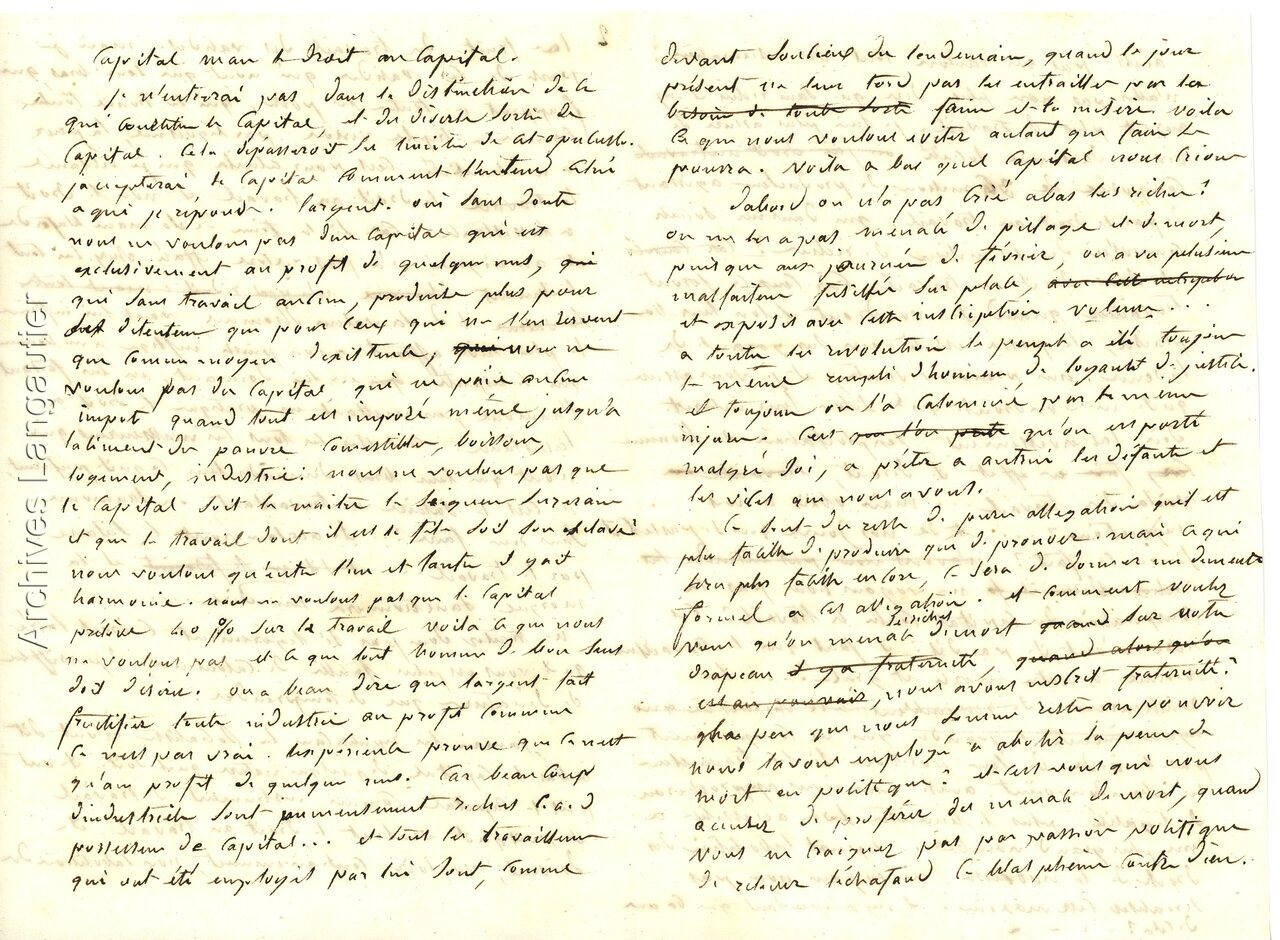 2
Capital mais le Droit au Capital.
je n'entrerai pas dans la Distinction de ce
qui constitue le Capital, et des diverses sortes de
Capital. Cela depasseroit les limites de cet opuscule.
j'accepterai le Capital comment l'entend
a qui je réponds. l'argent. oui sans doute
nous ne voulons pas d'un Capital qui est
exclusivement au profit de quelques uns, qui
qui sans travail aucun, produise plus pour
detenteur que pour ceux qui ne s'en servent
que comme moyen d'existence, qui nous ne
voulons pas du Capital qui ne paie aucun
impot quand tout est imposé même jusqu'a
l'aliment du pauvre Comestibles, boissons,
logement, industrie. nous ne voulons pas que
le Capital soit le maitre le seigneur suzerain
et que le travail dont il est le fils soit son esclave
nous voulons qu'entre l'un et l'autre I y ait
harmonie. nous ne voulons pas que le Capital
prélève 20 % sur le travail voila ce que nous
ne voulons pas et ce que tout homme de bon sens
doit désirer. on a beau dire que l'argent fait
fructifier toute industrie au profit commun
ce n'est pas vrai. l'expérience prouve que ce n'est
qu'au profit de quelques uns. Car beaucoup
d'industriels sont immensement riches c. a. d
possesseurs de Capital... et tous les travailleurs
qui ont été employés par lui sont, comme
devant soucieux du lendemain, quand le jour
présent ne leur tord pas les entrailles par les
besoins de toute sorte faim et la misère. voila
ce que nous voulons eviter autant que faire se
pourra. Voila a bas quel Capital nous crions
d'abord on n'a pas Crié a bas les riches!
on ne les a pas menacé de pillage et de mort,
puisque aux journées de février, on a vu plusieurs
malfaiteurs fusillés sur place, avec cette inscription
et exposés avec cette inscription voleurs.
a toutes les revolutions le peuple a été toujours
le même rempli d'honneur de loyauté de justice.
et toujours on l'a Calomnié par les memes
injures. C'est qu'on est porté
malgré soi, a prêter a autrui les défauts et
les vices que nous avons.
Ce sont du reste de pures allegations qu'il est
plus facile de produire que de prouver. mais ce qui
sera plus facile encore, ce sera de donner un dementi
formel a ces allegations. et comment voulez
vous qu'on menace de mort les riches quand sur notre
drapeau il y a fraternité, quand alors qu'on
est au pouvoir, nous avons inscrit fraternité?
peu que nous sommes restés au pouvoir
nous l'avons employé a abolir la peine de
mort en politique! et c'est vous qui nous
accusez de proférer des menaces de mort, quand
vous ne craignez pas par passion politique
de relever l'échafaud ce blasphème contre Dieu.
Archives Langautier